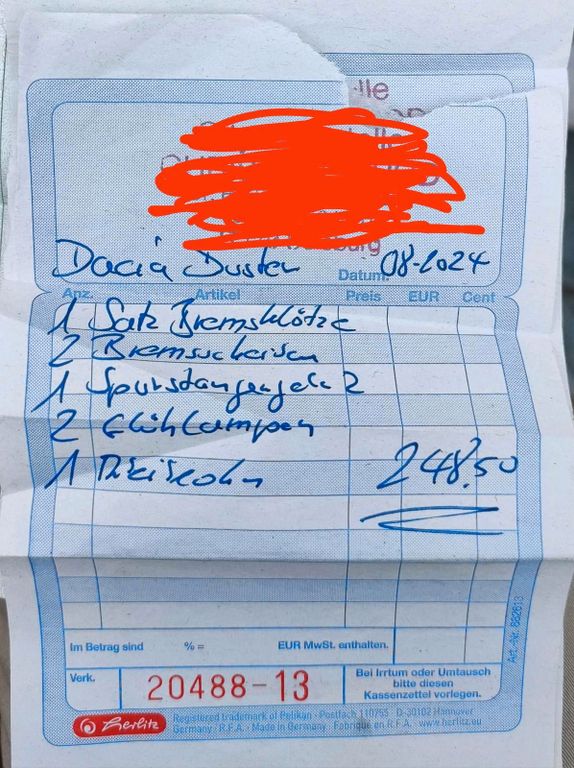 lle
Dacia Duster Datum: 08-2024
Anz. Artikel Preis EUR Cent
1 Satz Bremsklötze
2 Bremsscheiben
1 Spurstangengelenk
2 Glühlampen
1 248.50
Im Betrag sind % = EUR MwSt. enthalten.
Art.-Nr. 882613
Verk. 20488-13
Bei Irrtum oder Umtausch
bitte diesen
Kassenzettel vorlegen.
herlitz
Registered trademark of Pelikan · Postfach 110755 D-30102 Hannover
Germany · R.F.A. · Made in Germany · Fabriqué en R.F.A. · www.herlitz.eu